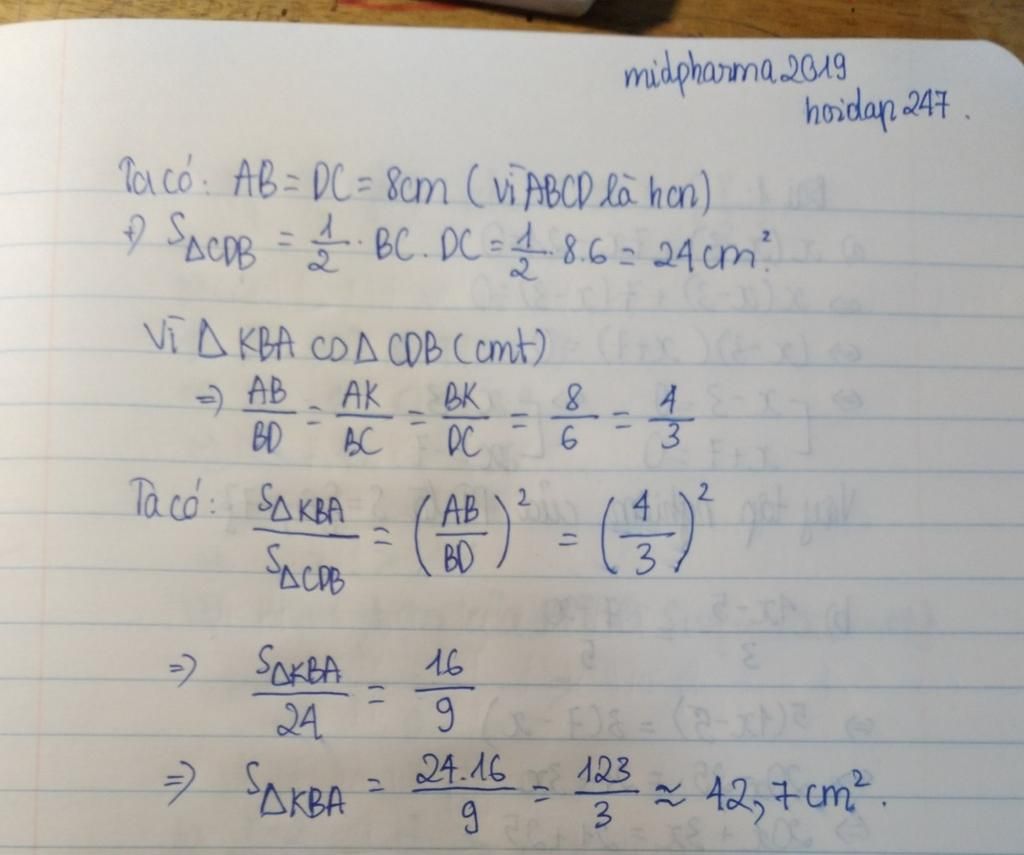 midpharma2019
hoidap247.
Ta có: AB = DC = 8cm (vì ABCD là hcn)
=> SΔCDB = 1/2 . BC . DC = 1/2 . 8.6 = 24 cm².
Vì Δ KBA ∽ Δ CDB (cmt)
=> AB/BD = AK/BC = BK/DC = 8/6 = 4/3
Ta có: SΔKBA/SΔCDB = (AB/BD)² = (4/3)²
=> SΔKBA/24 = 16/9
=> SΔKBA = 24.16/9 = 123/3 ≈ 42,7 cm².